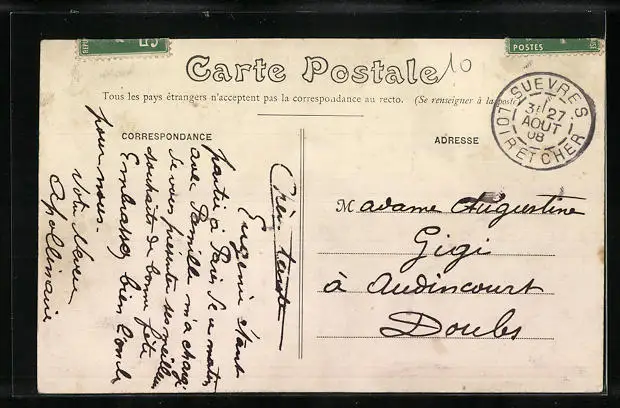 5
POSTES
Carte Postale
10
Tous les pays étrangers n'acceptent pas la correspondance au recto. (Se renseigner à la poste)
SUEVRES
3E 27
AOUT
08
LOIR-ET-CHER
CORRESPONDANCE
ADRESSE
Chère tante
Eugénie étant
partie à Paris ce matin
avec Camille m'a chargé
de vous présenter ses meilleurs
souhaits de bonne fête
Embrassez bien l'oncle
pour nous.
Votre Neveu
Apollinaire
Madame Augustine
Gigi
à Audincourt
Doubs